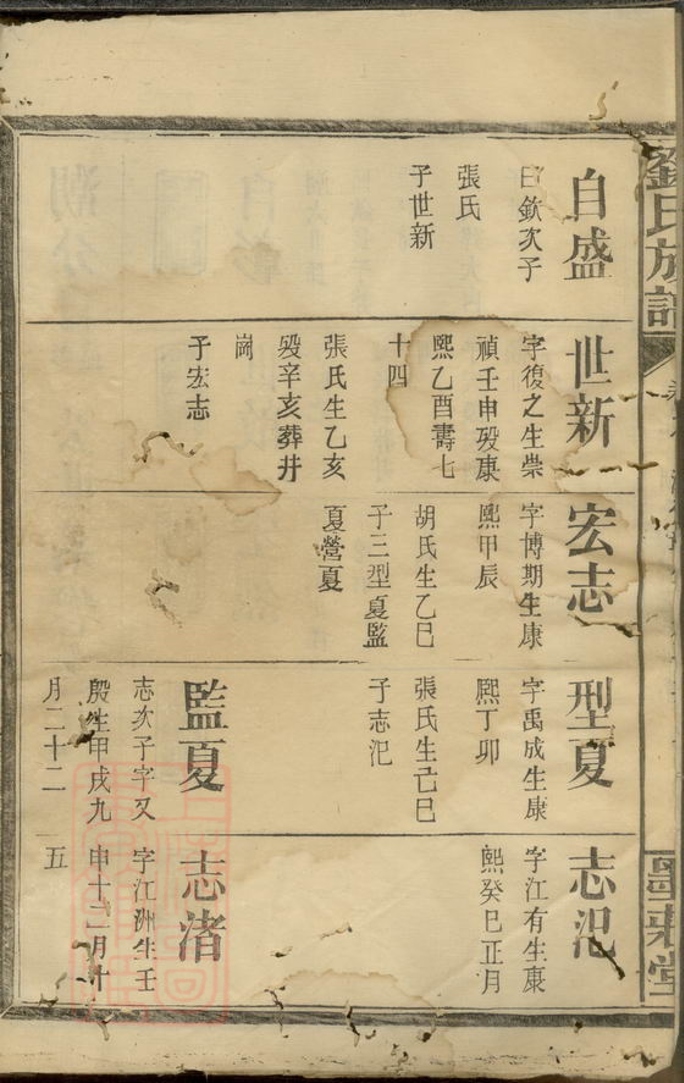 劉氏族譜
墨莊堂
自盛
曰欽次子
張氏
子世新
世新
字復之生崇
禎壬申歿康
熙乙酉壽七
十四
張氏生乙亥
歿辛亥葬井
崗
子宏志
宏志
字博期生康
熙甲辰
胡氏生乙巳
子三型夏監
夏營夏
型夏
字禹成生康
熙丁卯
張氏生己巳
子志汜
監夏
志次子字又
殷生甲戌九
月二十二
志汜
字江有生康
熙癸巳正月
志渚
字江洲生壬
申十二月十
五